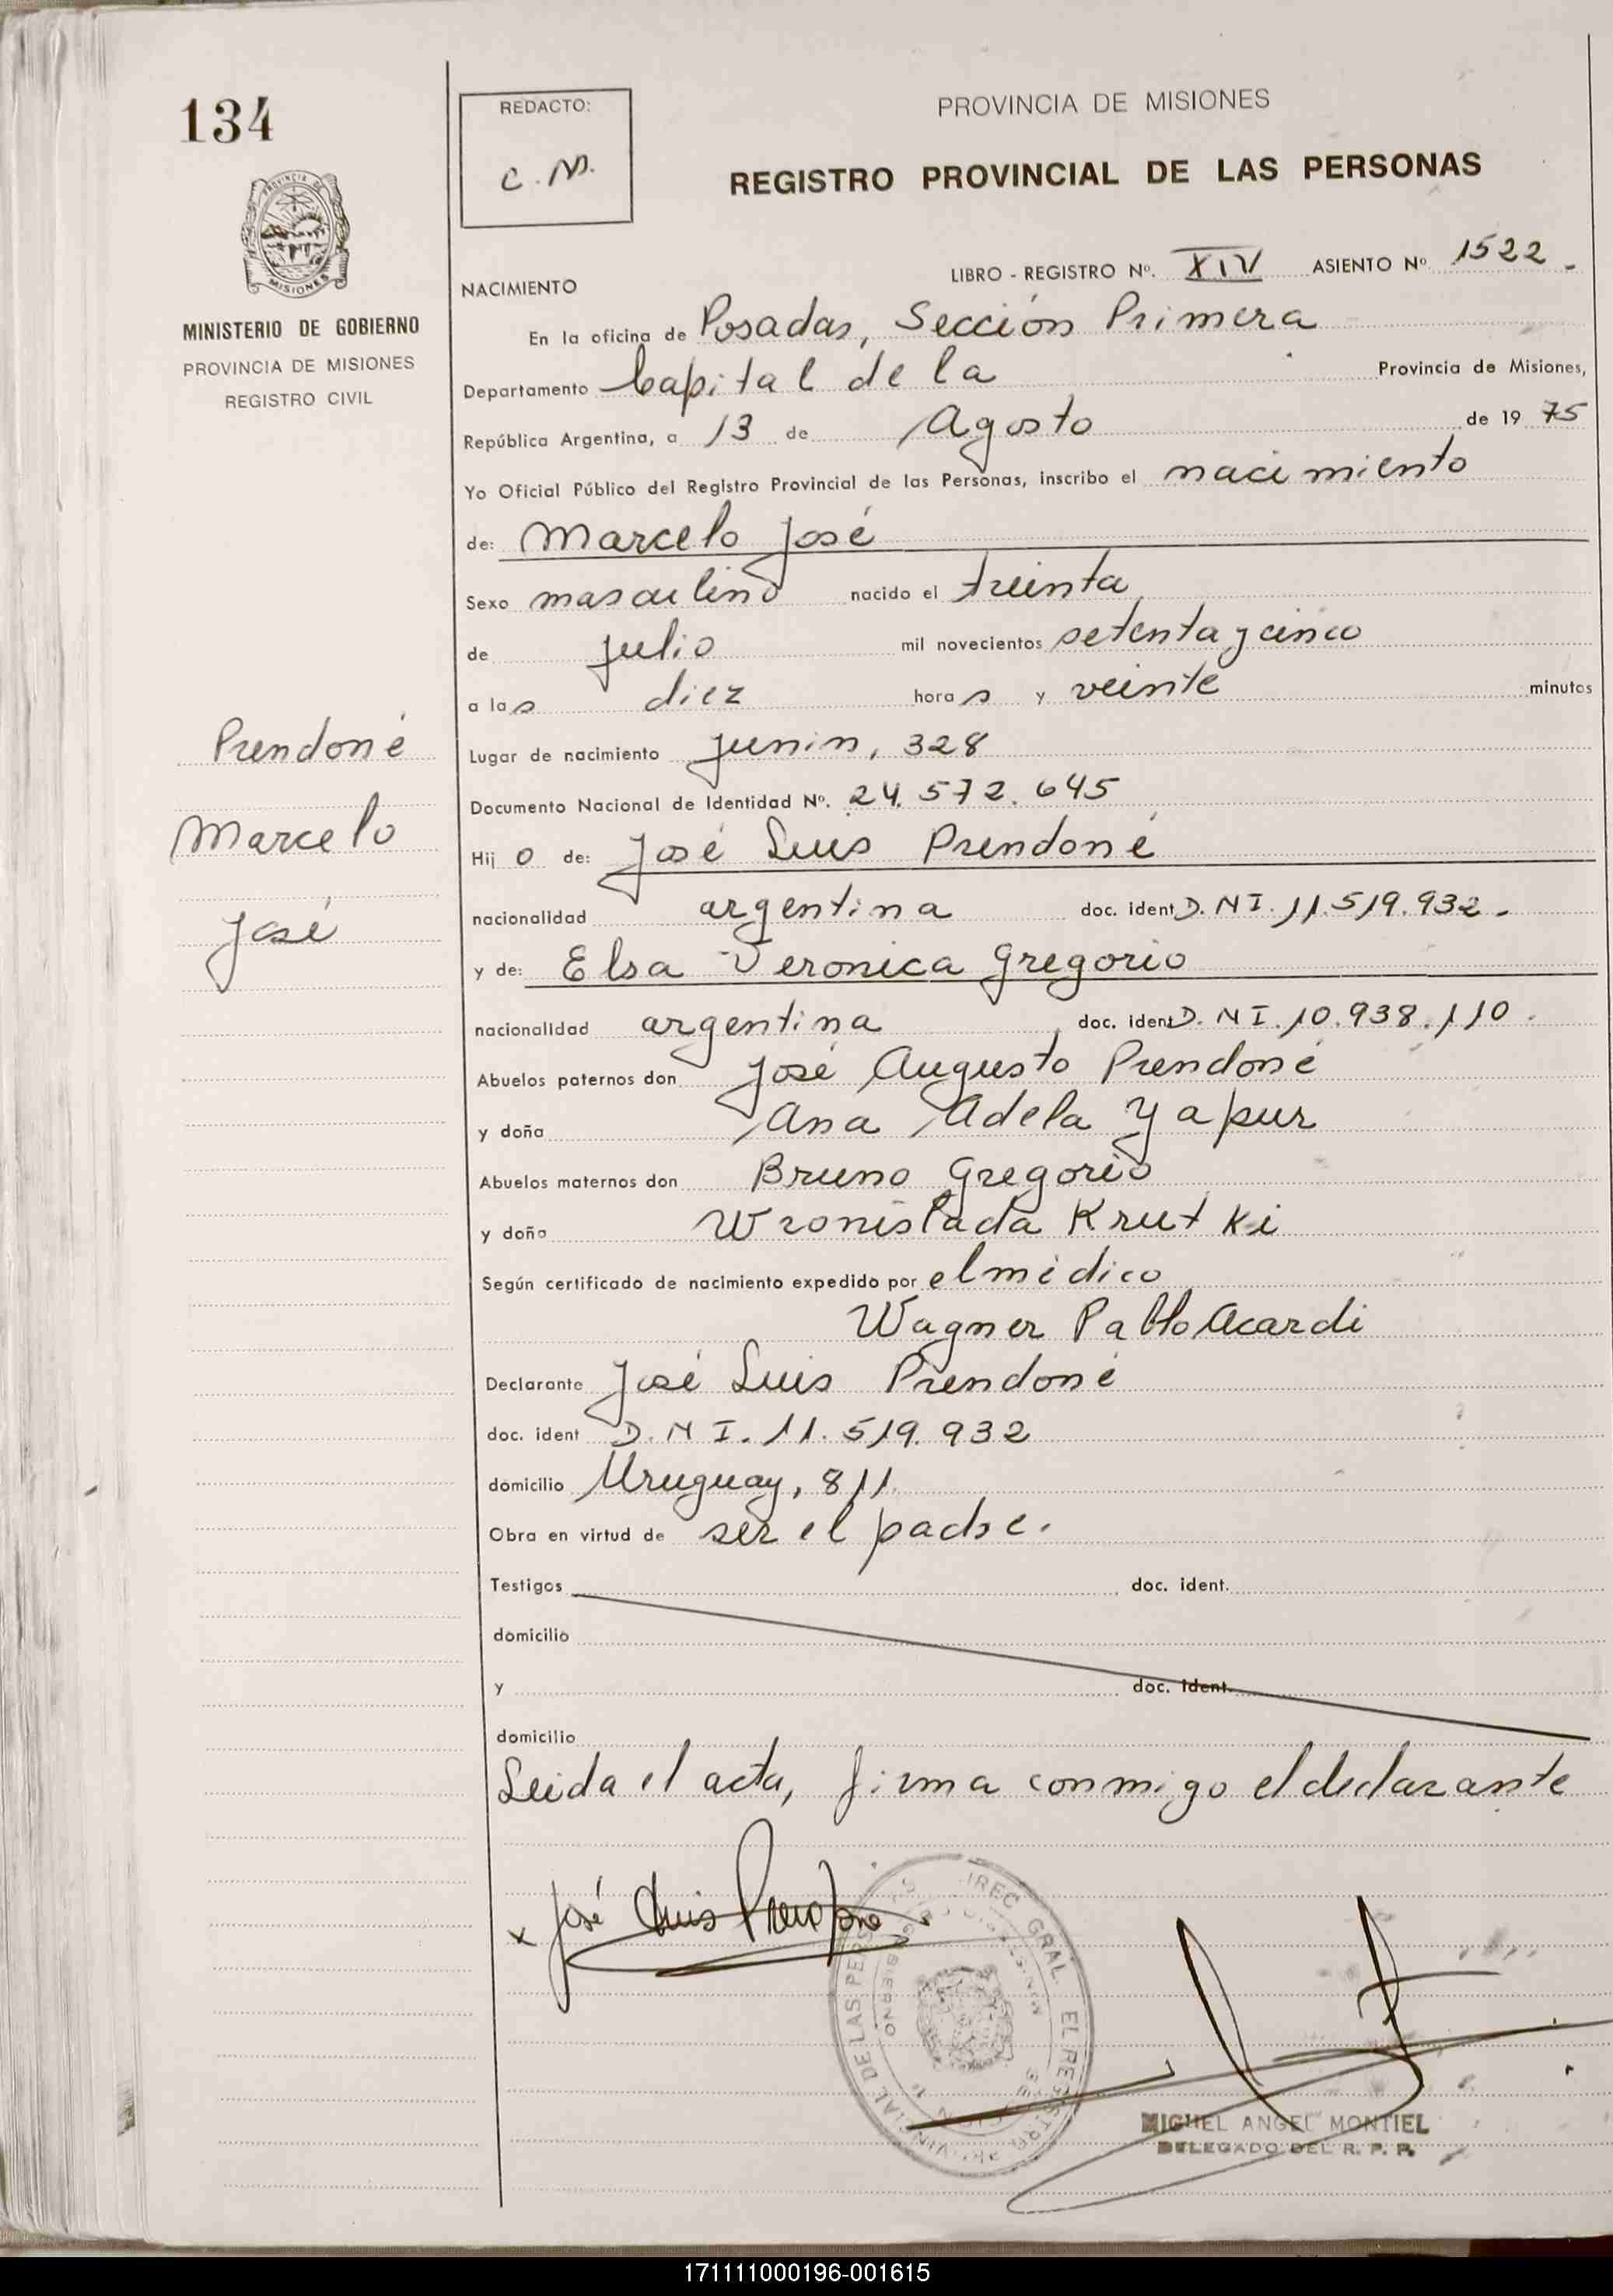 134
REDACTO:
C. M.
PROVINCIA DE MISIONES
REGISTRO PROVINCIAL DE LAS PERSONAS
MISIONES
MINISTERIO DE GOBIERNO
PROVINCIA DE MISIONES
REGISTRO CIVIL
LIBRO - REGISTRO Nº. XIV ASIENTO Nº 1522.-
NACIMIENTO
En la oficina de Posadas, Sección Primera
Departamento Capital de la Provincia de Misiones,
República Argentina, a 13 de Agosto de 19 75
Yo Oficial Público del Registro Provincial de las Personas, inscribo el nacimiento
de: Marcelo José
Sexo masculino nacido el treinta
de julio mil novecientos setenta y cinco
a las diez horas y veinte minutos
Prendoné
Marcelo
José
Lugar de nacimiento Junin, 328
Documento Nacional de Identidad Nº. 24.572.645
Hijo de: José Luis Prendoné
nacionalidad argentina doc. ident D.N I. 11.519.932.-
y de: Elsa Veronica Gregorio
nacionalidad argentina doc. ident D.N I. 10.938.110.
Abuelos paternos don José Augusto Prendoné
y doña Ana Adela Yapur
Abuelos maternos don Bruno Gregorio
y doña Wronislada Krutki
Según certificado de nacimiento expedido por el médico
Wagner Pablo Acardi
Declarante José Luis Prendoné
doc. ident D.N I. 11.519.932
domicilio Uruguay, 811
Obra en virtud de ser el padre.
Testigos doc. ident.
domicilio
y doc. ident.
domicilio
Leida el acta, firma conmigo el declarante
x José Luis Prendone
MIGUEL ANGEL MONTIEL
DELEGADO DEL R. P. P.
171111000196-001615